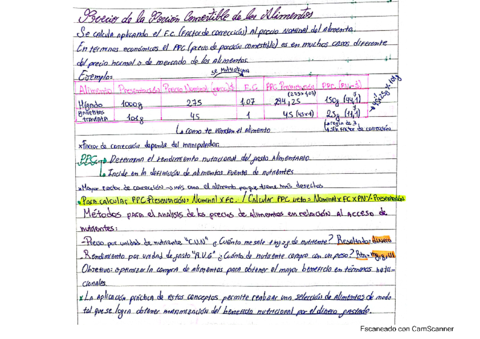 Precio de la Porción Comestible de los Alimentos
Se calcula aplicando el F.C (Factor de corrección) al precio nominal del alimento.
En términos económicos el PPC (precio de porción comestible) es en muchos casos diferente
del precio nominal o de mercado de los alimentos.
Ejemplos: se multiplica
Alimento Presentación Precio Nominal F.C PPC Presentación PPC
Hígado 1000g 275 1.07 294,25 150g (44,1)
101g 45 1 45 (45x1) 25g (11,1)
Lo como te venden el alimento
* Factor de corrección depende del manipulador.
PPC → Determina el rendimiento nutricional del gasto alimentario.
↳ Incide en la definición de alimentos fuentes de nutrientes
* Mayor factor de corrección → más caro el alimento ya que tiene más desechos
* Para calcular PPC Presentación = Nominal x F.C. / Calcular PPC neto = Nominal x FC x PN / Presentación
Métodos para el análisis de los precios de alimentos en relación al acceso de
nutrientes:
- Precio por unidad de nutriente "C.U.N" ¿Cuánto me sale 1 kg/g de nutriente? Resultado: dinero
- Rendimiento por unidad de gasto "R.U.G" ¿Cuánto de nutriente compro con un peso?
Objetivo: optimizar la compra de alimentos para obtener el mayor beneficio en términos nutri-
cionales
* La aplicación práctica de estos conceptos, permite realizar una selección de alimentos de modo
tal que se logra obtener maximización del beneficio nutricional por el dinero gastado.
Escaneado con CamScanner